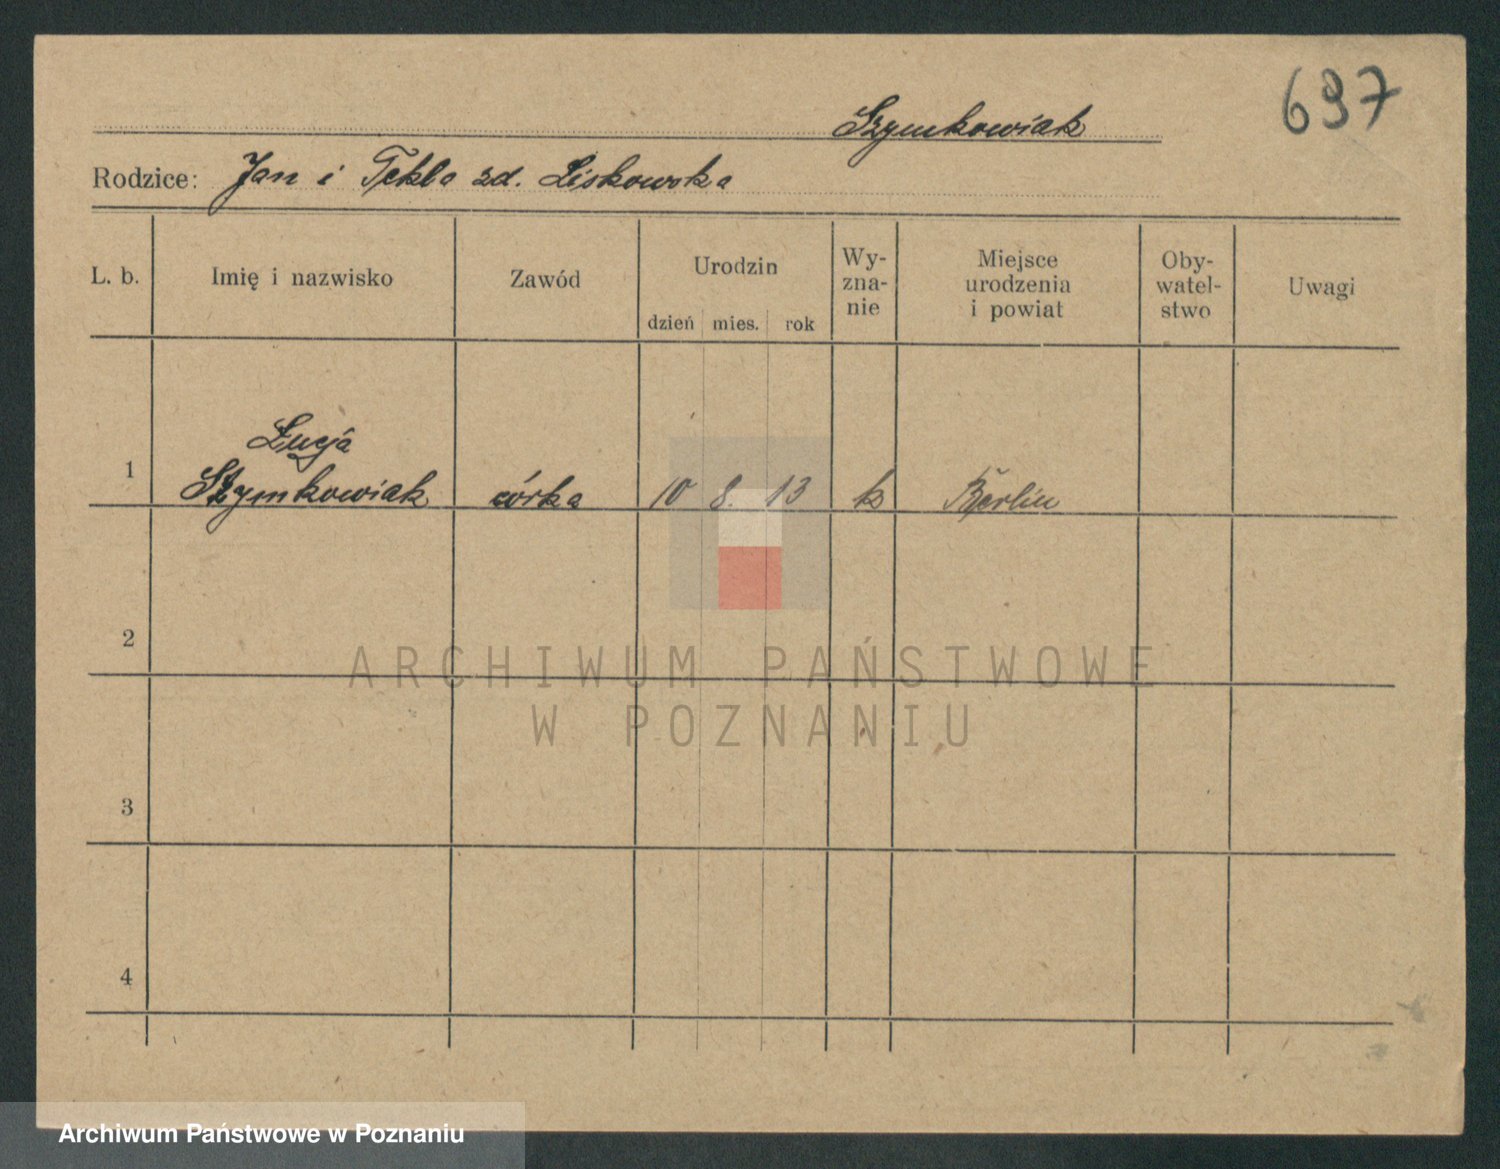 697
Szymkowiak
Rodzice: Jan i Tekla zd. Liskowska
L. b. Imię i nazwisko Zawód Urodzin Wy-zna-nie Miejsce urodzenia i powiat Oby-watel-stwo Uwagi
dzień mies. rok
Łucja
1 Szymkowiak córka 10 8. 13 k Berlin
2
ARCHIWUM PAŃSTWOWE
W POZNANIU
3
4
Archiwum Państwowe w Poznaniu